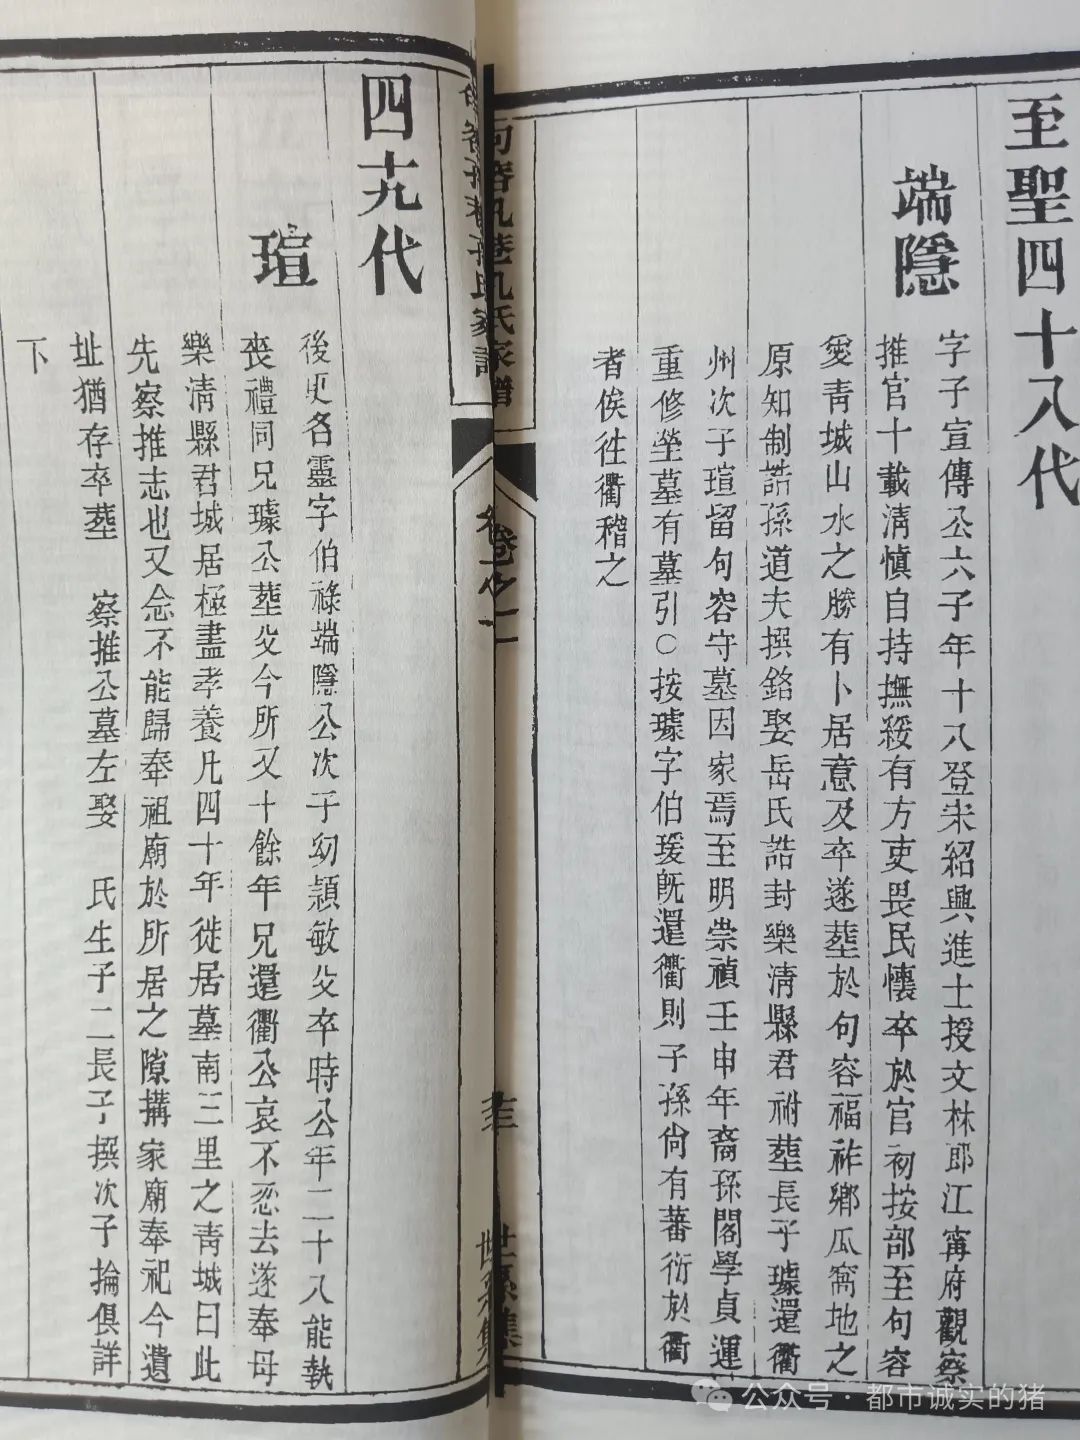 至聖四十八代
端隱
字子宣傳公六子年十八登宋紹興進士授文林郎江甯府觀察
推官十載清慎自持撫綏有方吏畏民懷卒於官初按部至句容
愛青城山水之勝有卜居意及卒遂塟於句容福祚鄉瓜窩地之
原知制誥孫道夫撰銘娶岳氏誥封樂清縣君祔塟長子璩還衢
州次子瑄留句容守墓因家焉至明崇禎壬申年裔孫閣學貞運
重修塋墓有墓引○按璩字伯瑗旣還衢則子孫尙有蕃衍於衢
者俟徃衢稽之
句容孔巷孔氏家譜
卷之一
世系集
四十九代
瑄
後更名靈字伯祿端隱公次子幼穎敏父卒時公年二十八能執
喪禮同兄璩公塟父今所又十餘年兄還衢公哀不忍去遂奉母
樂清縣君城居極盡孝養凡四十年徙居墓南三里之青城曰此
先察推志也又念不能歸奉祖廟於所居之隙搆家廟奉祀今遺
址猶存卒塟　察推公墓左娶　氏生子二長子撰次子掄俱詳
下
公众号·都市诚实的猪